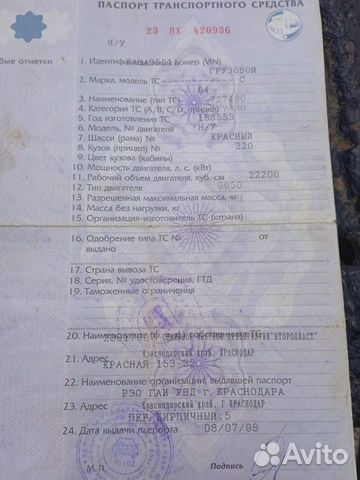 ПАСПОРТ ТРАНСПОРТНОГО СРЕДСТВА
23 ВХ 420936
бые отметки
Н/У
1. Идентификационный номер (VIN)
ГРУЗОВОЙ
2. Марка, модель ТС
С
84
3. Наименование (тип ТС)
727480
4. Категория ТС (А, В, С, D, прицеп)
5. Год изготовления ТС
188553
6. Модель, № двигателя
Н/У
7. Шасси (рама) №
КРАСНЫЙ
8. Кузов (прицеп) №
220
9. Цвет кузова (кабины)
10. Мощность двигателя, л. с. (кВт)
11. Рабочий объем двигателя, куб. см
22200
12. Тип двигателя
9050
13. Разрешенная максимальная масса, кг
14. Масса без нагрузки, кг
15. Организация-изготовитель ТС (страна)
16. Одобрение типа ТС №
от
выдано
17. Страна вывоза ТС
18. Серия, № удостоверения, ГТД
19. Таможенные ограничения
20. Наименование (ф. и. о.) собственника ТС
21. Адрес
Краснодарский край, КРАСНОДАР
КРАСНАЯ 153-32
22. Наименование организации, выдавшей паспорт
РЭО ГАИ УВД г. КРАСНОДАРА
23. Адрес
Краснодарский край, Г КРАСНОДАР
ПЕР.КИРПИЧНЫЙ.5
24. Дата выдачи паспорта
08/07/98
М.П.
Подпись
Avito